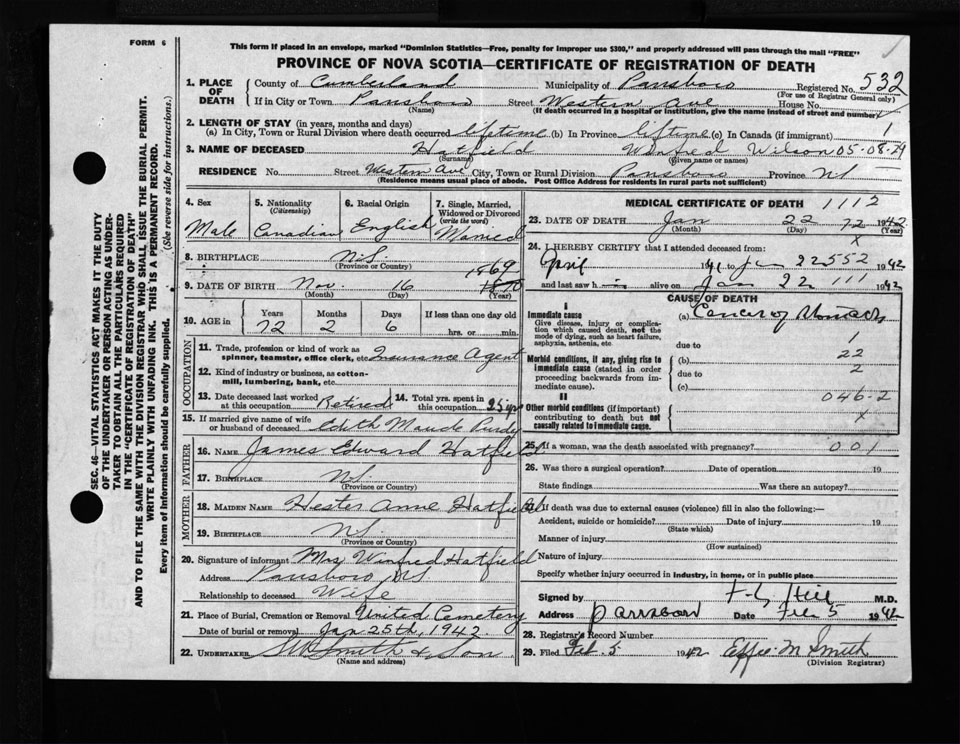 FORM 6
This form if placed in an envelope, marked "Dominion Statistics—Free, penalty for improper use $300," and properly addressed will pass through the mail "FREE"
PROVINCE OF NOVA SCOTIA—CERTIFICATE OF REGISTRATION OF DEATH
1. PLACE OF DEATH
County of Cumberland Municipality of Parrsboro Registered No. 532
(For use of Registrar General only)
If in City or Town Parrsboro Street Western Ave House No.
(Name) (If death occurred in a hospital or institution, give the name instead of street and number)
2. LENGTH OF STAY (in years, months and days)
(a) In City, Town or Rural Division where death occurred lifetime (b) In Province liftime (c) In Canada (if immigrant) 1
3. NAME OF DECEASED Hatfield Winfred Wilson 05-08-29
(Surname) (Given name or names)
RESIDENCE No. Western Ave City, Town or Rural Division Parrsboro Province NS
(Residence means usual place of abode. Post Office Address for residents in rural parts not sufficient)
4. Sex Male
5. Nationality (Citizenship) Canadian
6. Racial Origin English
7. Single, Married, Widowed or Divorced (write the word) Married
8. BIRTHPLACE N.S.
(Province or Country)
9. DATE OF BIRTH Nov. 16 1869 1870
(Month) (Day) (Year)
10. AGE in Years Months Days If less than one day old
72 2 6 hrs. or min.
OCCUPATION
11. Trade, profession or kind of work as spinner, teamster, office clerk, etc. Insurance Agent
12. Kind of industry or business, as cotton-mill, lumbering, bank, etc.
13. Date deceased last worked at this occupation Retired
14. Total yrs. spent in this occupation 25 yrs
15. If married give name of wife or husband of deceased Edith Maude Purdy
FATHER
16. NAME James Edward Hatfield
17. BIRTHPLACE NS
(Province or Country)
MOTHER
18. MAIDEN NAME Hester Anne Hatfield
19. BIRTHPLACE NS.
(Province or Country)
20. Signature of informant Mrs Winfred Hatfield
Address Parrsboro NS.
Relationship to deceased Wife
21. Place of Burial, Cremation or Removal United Cemetery
Date of burial or removal Jan. 25th, 1942.
22. UNDERTAKER Smith & Son
(Name and address)
MEDICAL CERTIFICATE OF DEATH 1112
23. DATE OF DEATH Jan 22 72 1942
(Month) (Day) (Year)
24. I HEREBY CERTIFY that I attended deceased from:
April 1941 to Jan 22 552 1942
and last saw h alive on Jan 22 111 1942
CAUSE OF DEATH
I
Immediate cause
Give disease, injury or complication which caused death, not the mode of dying, such as heart failure, asphyxia, asthenia, etc.
(a) Cancer of Stomach
due to 1
Morbid conditions, if any, giving rise to immediate cause (stated in order proceeding backwards from immediate cause).
(b) 22
due to 2
(c)
II
Other morbid conditions (if important) contributing to death but not causally related to immediate cause.
046-2
x
25. If a woman, was the death associated with pregnancy? 001
26. Was there a surgical operation? Date of operation 19
State findings Was there an autopsy?
27. If death was due to external causes (violence) fill in also the following:—
Accident, suicide or homicide? Date of injury 19
(State which)
Manner of injury
(How sustained)
Nature of injury
Specify whether injury occurred in industry, in home, or in public place
Signed by Hill M.D.
Address Parrsboro Date Feb 5 1942
28. Registrar's Record Number
29. Filed Feb. 5 1942 Effie M Smith
(Division Registrar)
SEC. 46—VITAL STATISTICS ACT MAKES IT THE DUTY
OF THE UNDERTAKER OR PERSON ACTING AS UNDER-
TAKER TO OBTAIN ALL THE PARTICULARS REQUIRED
IN THE "CERTIFICATE OF REGISTRATION OF DEATH"
AND TO FILE THE SAME WITH THE DIVISION REGISTRAR WHO SHALL ISSUE THE BURIAL PERMIT.
WRITE PLAINLY WITH UNFADING INK. THIS IS A PERMANENT RECORD.
Every item of information should be carefully supplied. (See reverse side for instructions.)